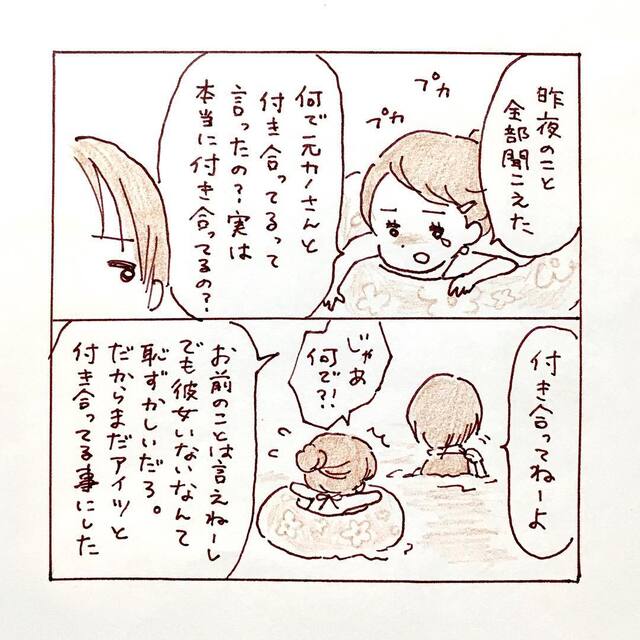 昨夜のこと
全部聞こえた
プカ
プカ
何で元カノさんと
付き合ってるって
言ったの？実は
本当に付き合ってるの？
付き合ってねーよ
じゃあ
何で？！
お前のことは言えねーし
でも彼女いないなんて
恥ずかしいだろ。
だからまだアイツと
付き合ってる事にした